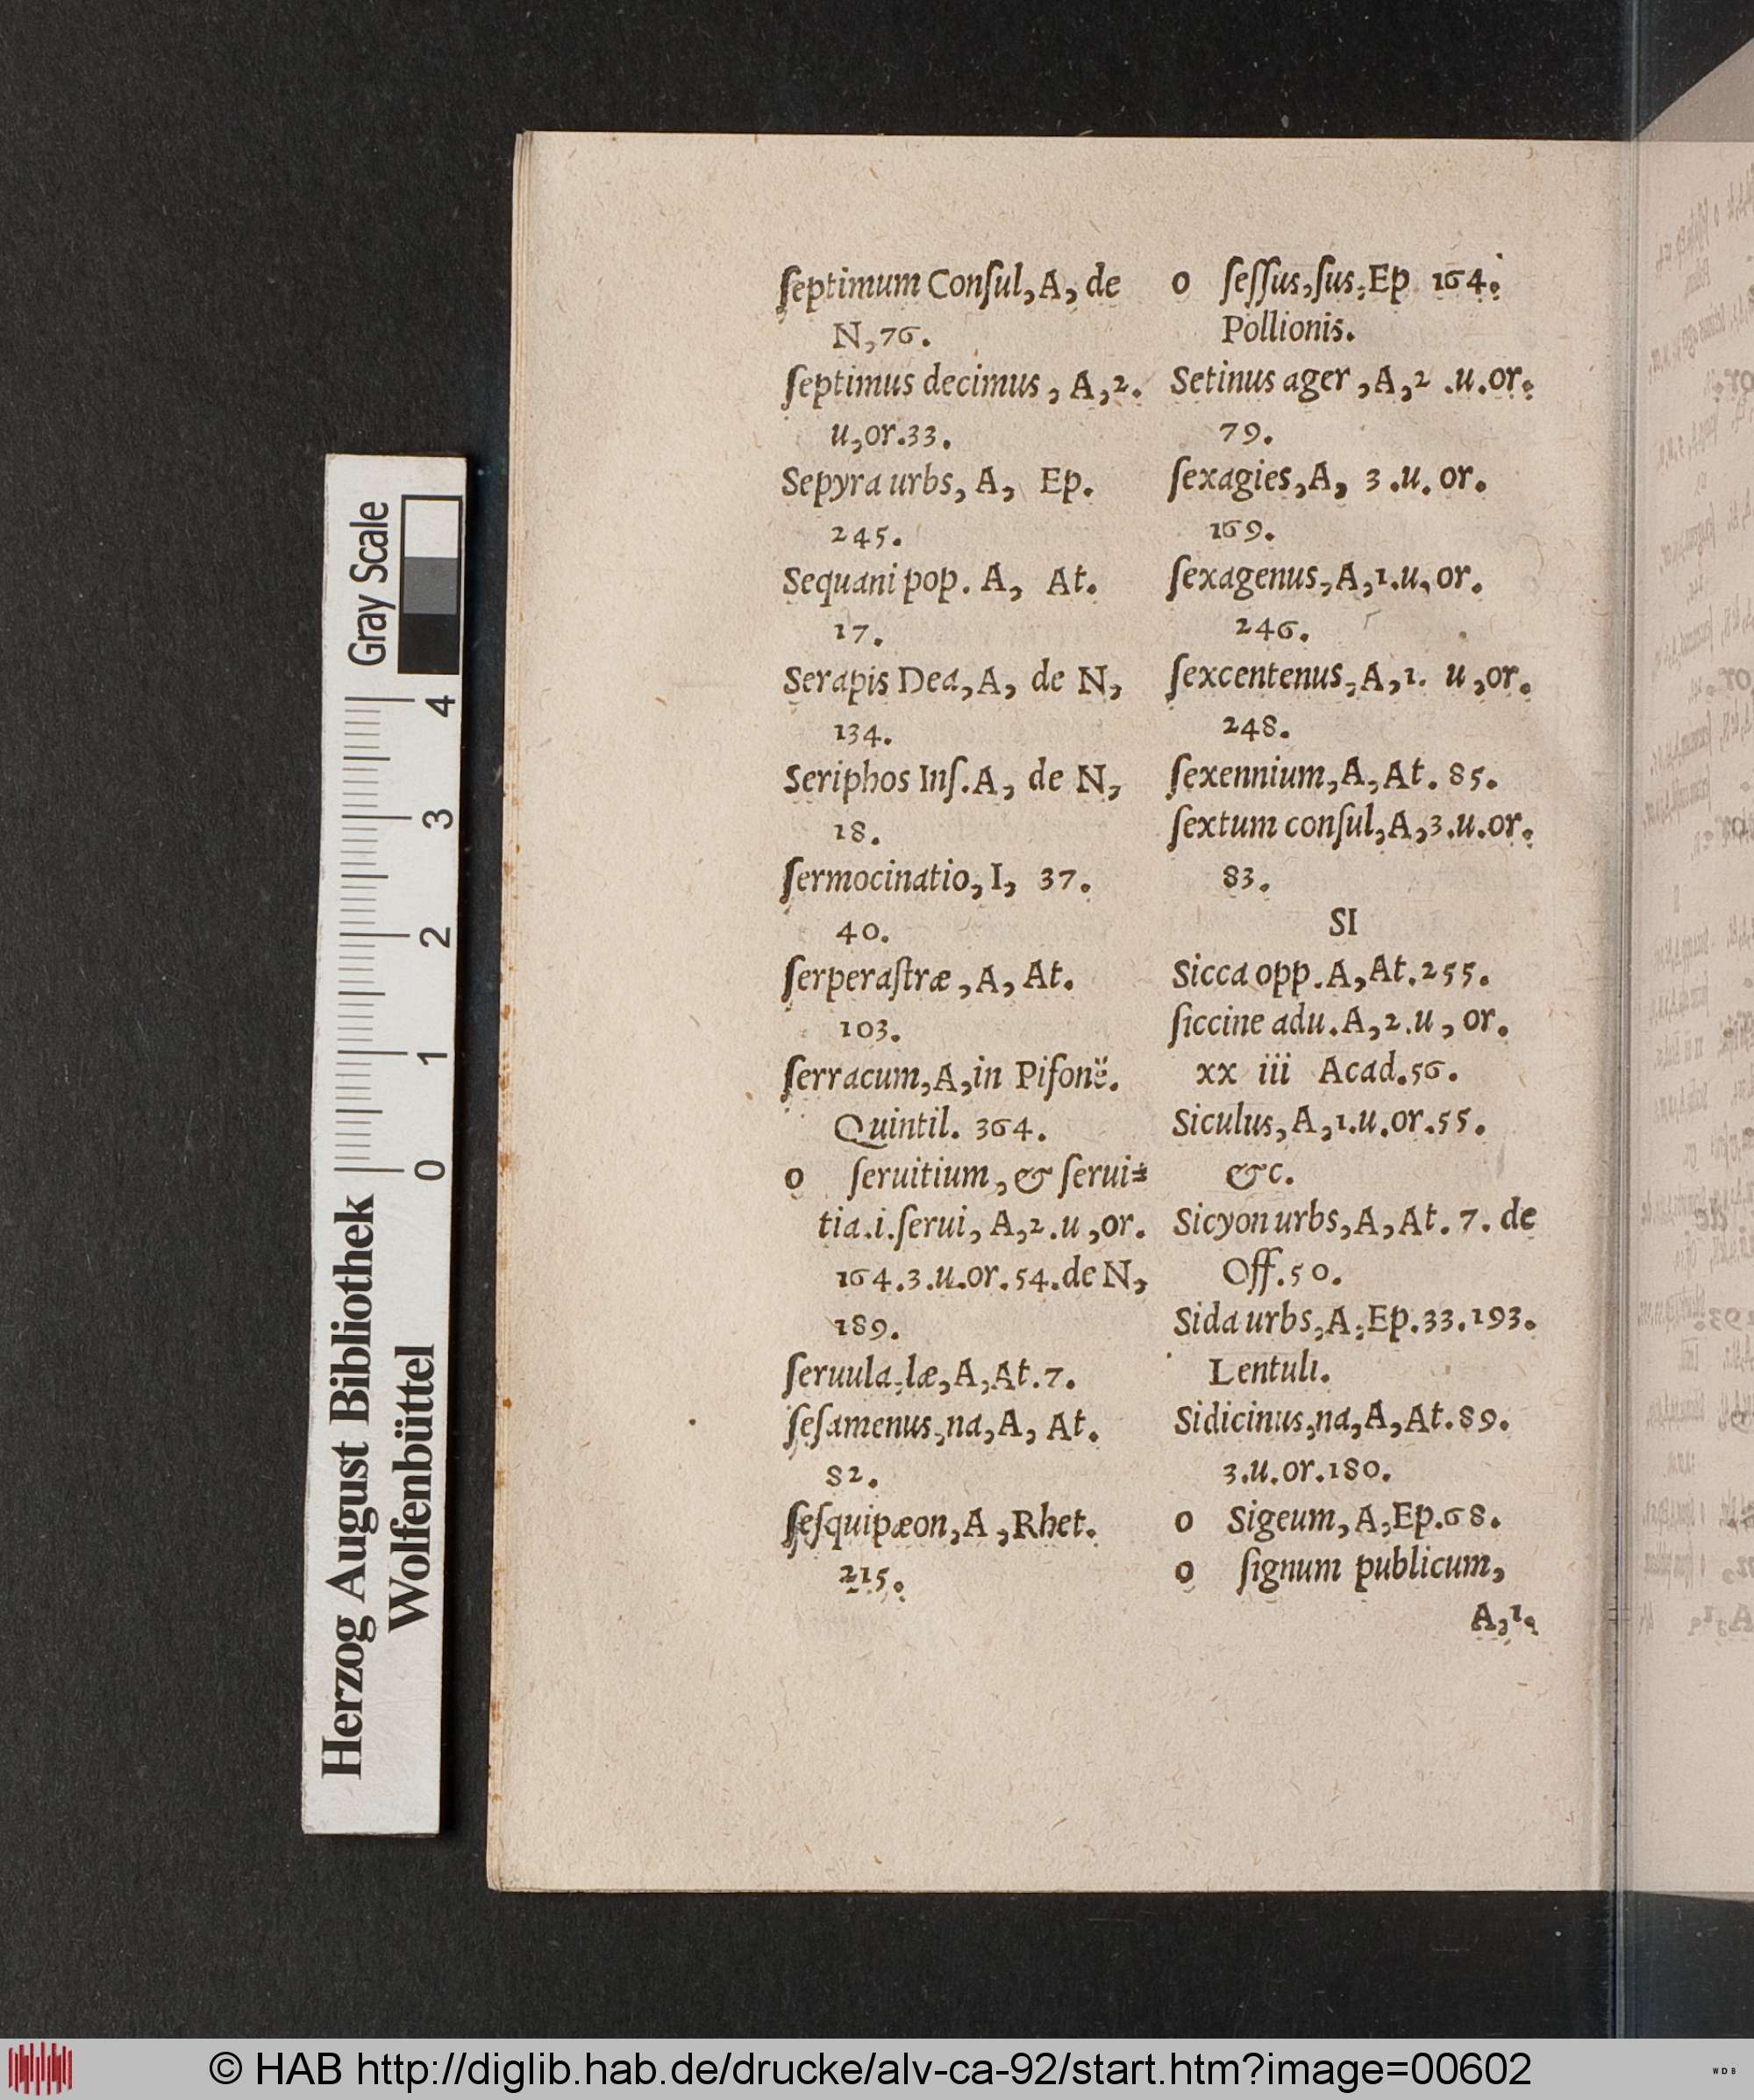 ſeptimum Conſul, A, de
N, 76.
ſeptimus decimus, A, 2.
u, or. 33.
Sepyra urbs, A, Ep.
245.
Sequani pop. A, At.
17.
Serapis Dea, A, de N,
134.
Seriphos Inſ. A, de N,
18.
ſermocinatio, I, 37.
40.
ſerperaſtræ, A, At.
103.
ſerracum, A, in Piſonë.
Quintil. 364.
o ſeruitium, & ſerui=
tia. i. ſerui, A, 2. u, or.
164. 3. u. or. 54. de N,
189.
ſeruula, læ, A, At. 7.
ſeſamenus, na, A, At.
82.
ſeſquipæon, A, Rhet.
215.
o ſeſſus, ſus, Ep 164.
Pollionis.
Setinus ager, A, 2. u. or.
79.
ſexagies, A, 3. u. or.
169.
ſexagenus, A, 1. u, or.
246.
ſexcentenus, A, 1. u, or.
248.
ſexennium, A, At. 85.
ſextum conſul, A, 3. u. or.
83.
SI
Sicca opp. A, At. 255.
ſiccine adu. A, 2. u, or.
xx iii Acad. 56.
Siculus, A, 1. u. or. 55.
&c.
Sicyon urbs, A, At. 7. de
Off. 50.
Sida urbs, A, Ep. 33. 193.
Lentuli.
Sidicinus, na, A, At. 89.
3. u. or. 180.
o Sigeum, A, Ep. 68.
o ſignum publicum,
A, 1,
Gray Scale
4
3
2
1
0
Herzog August Bibliothek
Wolfenbüttel
© HAB http://diglib.hab.de/drucke/alv-ca-92/start.htm?image=00602
WDB